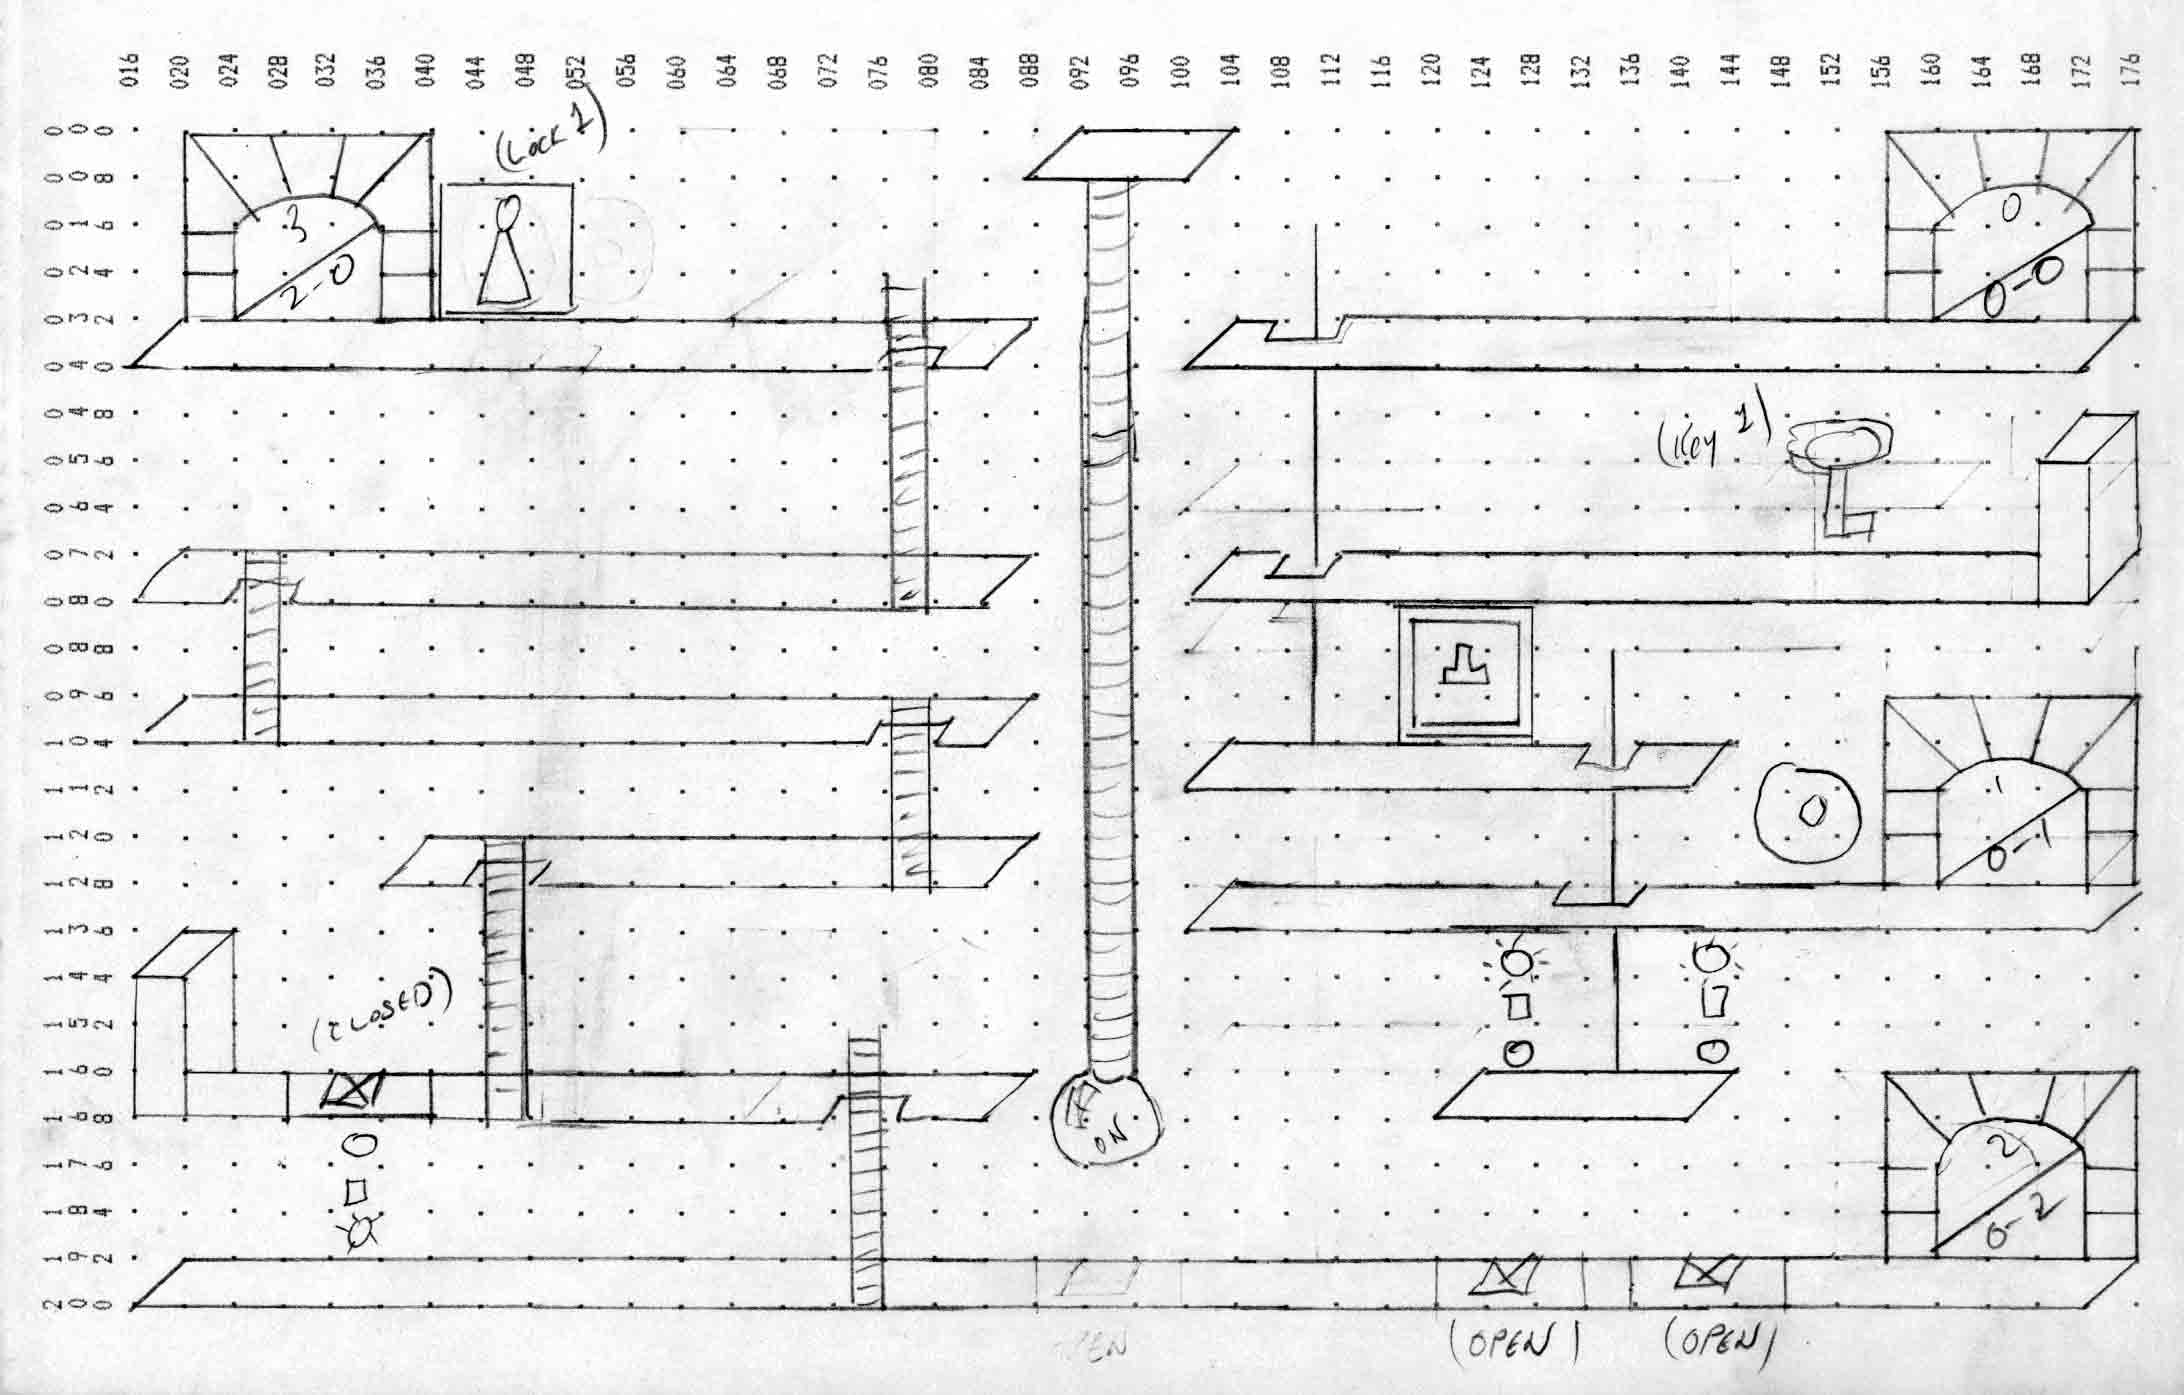 016 020 024 028 032 036 040 044 048 052 056 060 064 068 072 076 080 084 088 092 096 100 104 108 112 116 120 124 128 132 136 140 144 148 152 156 160 164 168 172 176
000
008
016
024
032
040
048
056
064
072
080
088
096
104
112
120
128
136
144
152
160
168
176
184
192
200
(Lock 1)
3
2-0
0
0-0
(Key 1)
1
0-1
(CLOSED)
ON
2
0-2
(OPEN)
(OPEN)